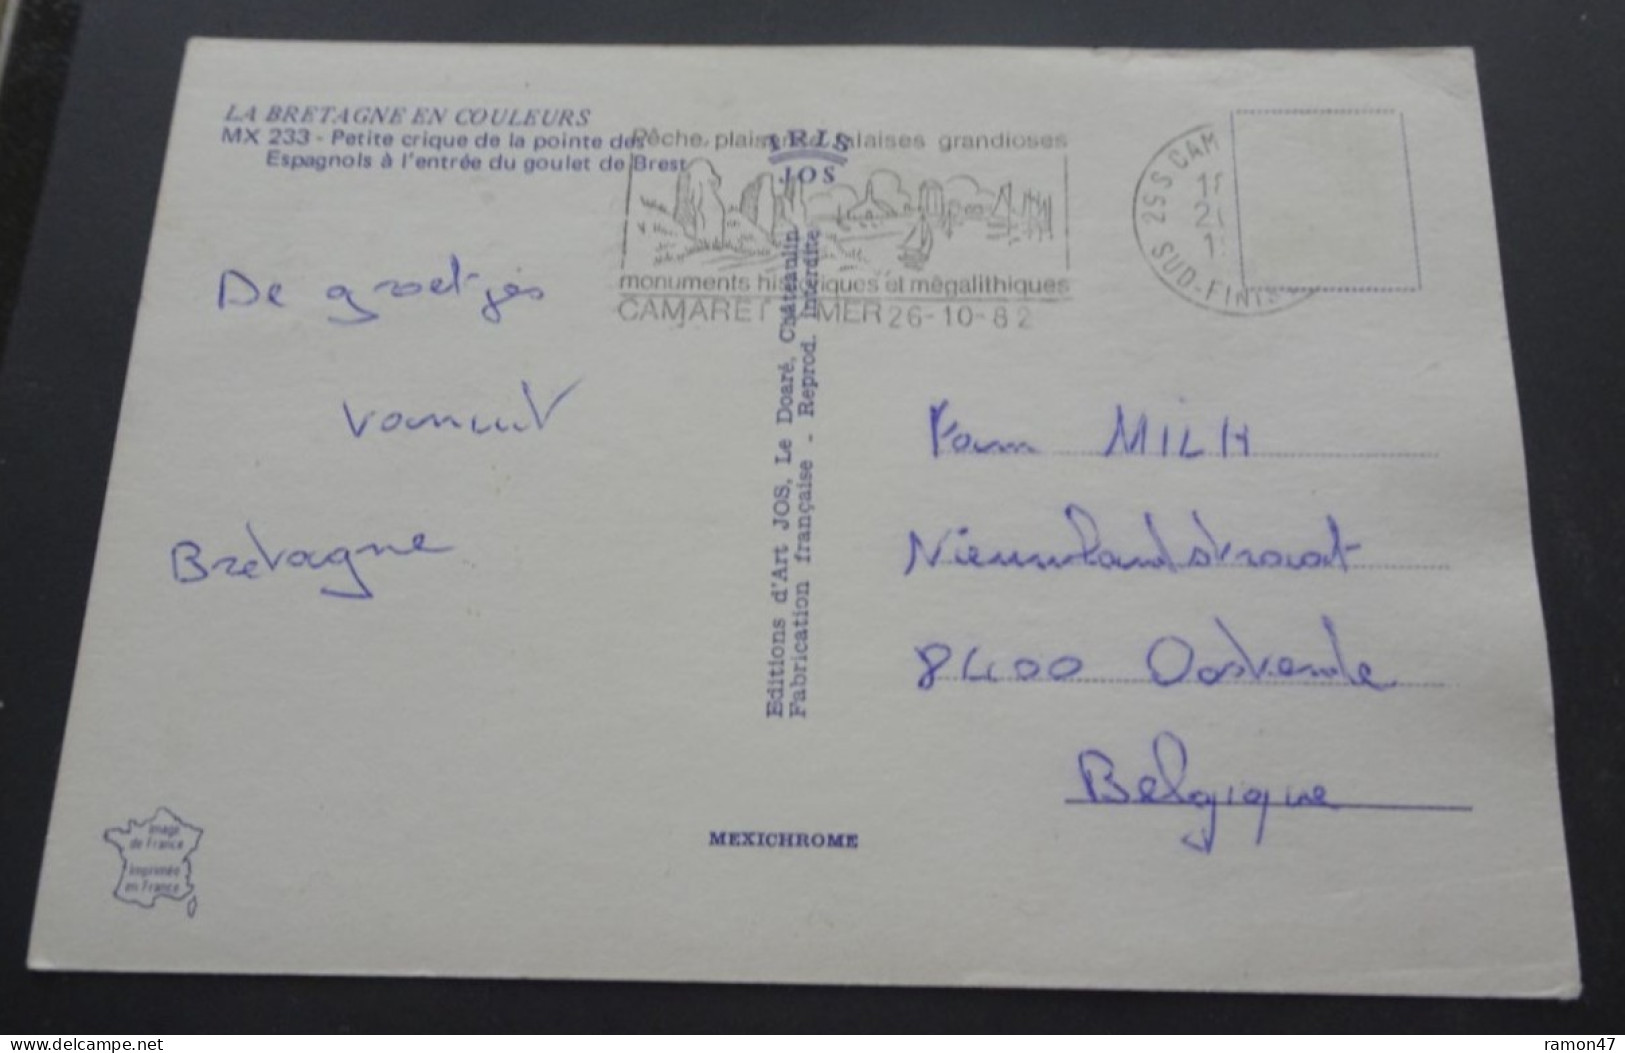 LA BRETAGNE EN COULEURS
MX 233 - Petite crique de la pointe des
Espagnols à l'entrée du goulet de Brest
Pêche, plaisance, falaises grandioses
monuments historiques et mégalithiques
CAMARET S/MER 26-10-82
IRIS
JOS
29 S CAM
SUD-FINIS
De groetjes
vanuit
Bretagne
Editions d'Art JOS, Le Doaré, Châteaulin
Fabrication française - Reprod. Interdite
Fam MILH
Nieuwlandstraat
8400 Oostende
Belgique
MEXICHROME
Image
de France
Imprimée
en France
delcampe.net
ramon47